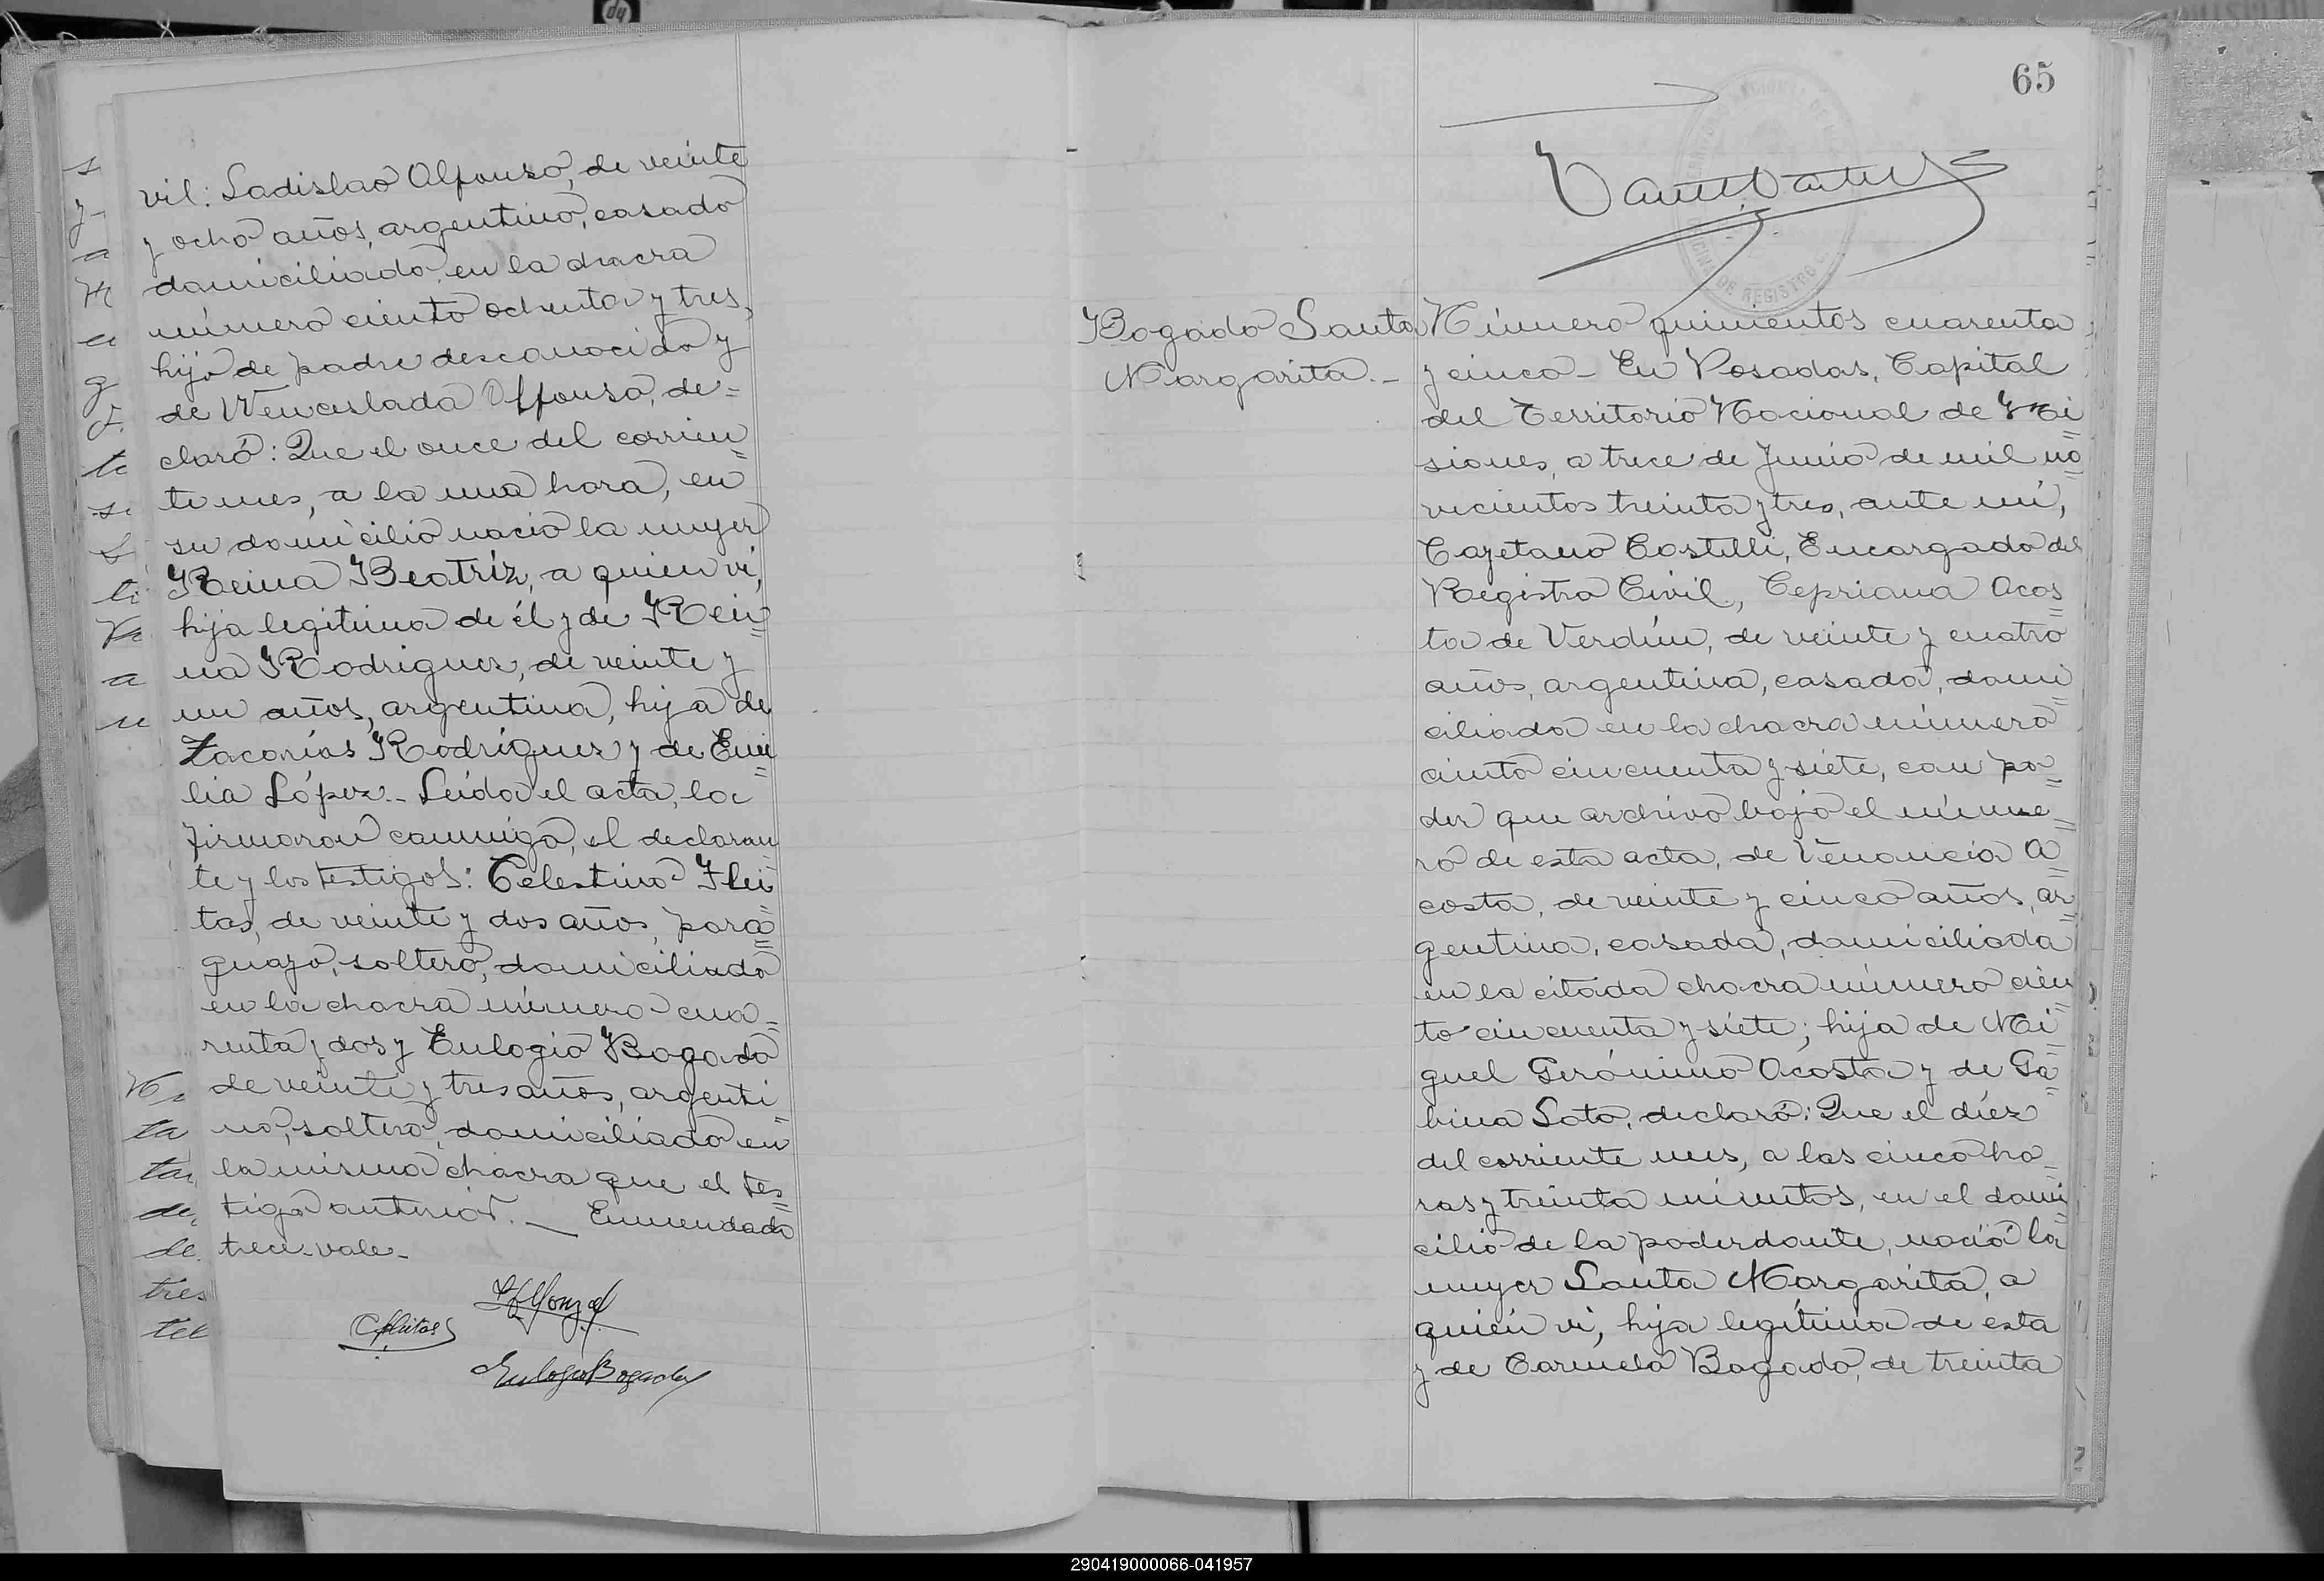 vil: Ladislao Alfonso, de veinte
y ocho años, argentino, casado
domiciliado en la chacra
número ciento ochenta y tres,
hijo de padre desconocido y
de Wenceslada Alfonso, de=
claró: Que el once del corrien=
te mes, a la una hora, en
su domicilio nació la mujer
Reina Beatríz, a quien vi,
hija legitima de él y de Rei=
na Rodriguez, de veinte y
un años, argentina, hija de
Zacarías Rodríguez y de Emi=
lia López.- Leída el acta, la
firmaron conmigo, el declaran=
te y los testigos: Celestino Flei=
tas, de veinte y dos años, para=
guayo, soltero, domiciliado
en la chacra número cua=
renta y dos y Eulogio Bogado
de veinte y tres años, argenti=
no, soltero, domiciliado en
la misma chacra que el tes=
tigo anterior. — Enmendado
trece-vale-
CFleitas
Eulogio Bogado
65
OFICINA DE REGISTRO C
Bogado Santa
Margarita.-
Número quinientos cuarenta
y cinco- En Posadas, Capital
del Territorio Nacional de Mi=
siones, a trece de Junio de mil no=
vecientos treinta y tres, ante mí,
Cayetano Costelli, Encargado del
Registro Civil, Cepriana Acos=
ta de Verdún, de veinte y cuatro
años, argentina, casada, domi=
ciliada en la chacra número
ciento cincuenta y siete, con po=
der que archivo bajo el núme=
ro de esta acta, de Venancia A=
costa, de veinte y cinco años, ar=
gentina, casada, domiciliada
en la citada chacra número cien=
to cincuenta y siete; hija de Mi=
guel Gerónimo Acosta y de Ga=
bina Soto, declaró: Que el diez
del corriente mes, a las cinco ho=
ras y treinta minutos, en el domi=
cilio de la poderdante, nació la
mujer Santa Margarita, a
quién vi, hija legítima de esta
y de Carmelo Bogado, de treinta
290419000066-041957